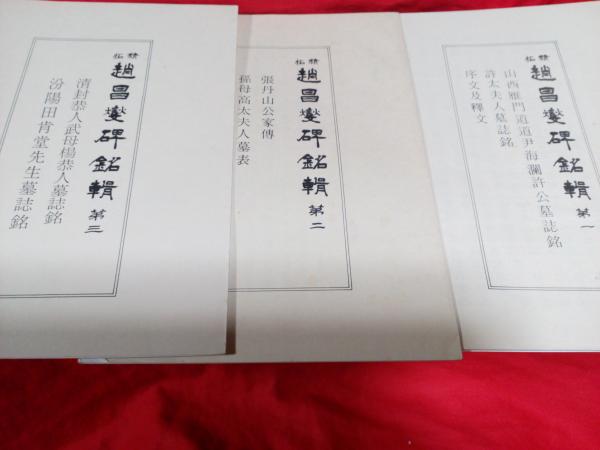 精拓
趙昌燮碑銘輯 第一
山西雁門道道尹海瀾許公墓誌銘
許太夫人墓誌銘
序文及釋文
精拓
趙昌燮碑銘輯 第二
張丹山公家傳
孫母高太夫人墓表
精拓
趙昌燮碑銘輯 第三
清封恭人武母楊恭人墓誌銘
汾陽田肯堂先生墓誌銘